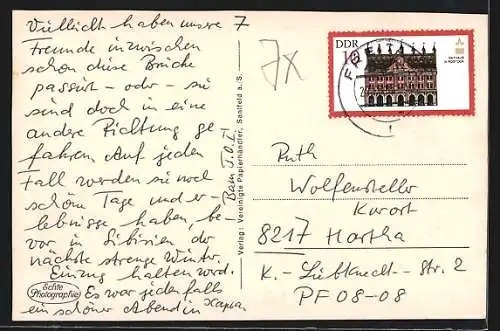 Vielleicht haben unsere 7
Freunde inzwischen
schon diese Brücke
passiert - oder - sie
sind doch in eine
andere Richtung ge
fahren. Auf jeden
Fall werden sie noch
schöne Tage und er-
lebnisse haben, be-
vor in Sibirien der
nächste strenge Winter
Einzug halten wird.
Es war jedenfalls
ein schöner Abend in
Echte
Photographie
Verlag: Vereinigte Papierhändler, Saalfeld a. S.
7x
DDR
10
RATHAUS
IN ROSTOCK
Ruth
Wolfensteller
Kurort
8217 Hartha
K.-Liebknecht-Str. 2
PF 08-08